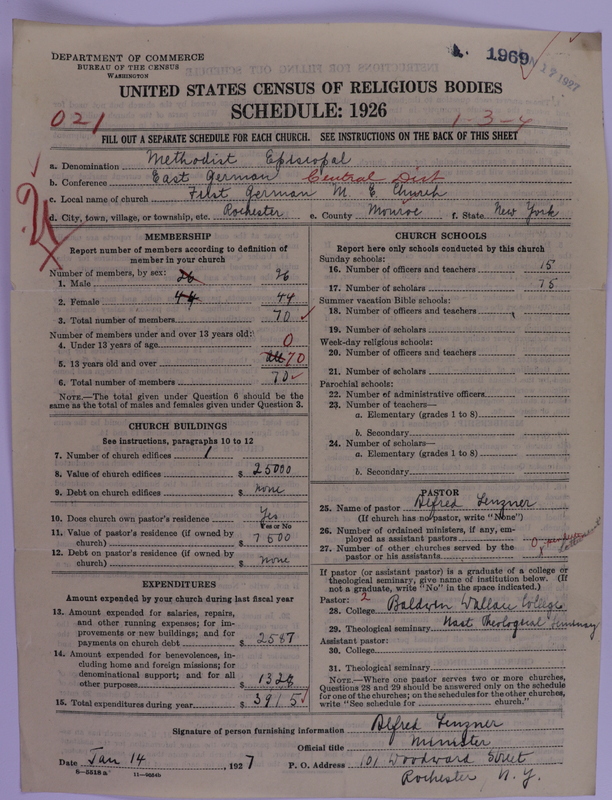 DEPARTMENT OF COMMERCE
BUREAU OF THE CENSUS
WASHINGTON
1969
UNITED STATES CENSUS OF RELIGIOUS BODIES
SCHEDULE: 1926
021
1-3-4
FILL OUT A SEPARATE SCHEDULE FOR EACH CHURCH. SEE INSTRUCTIONS ON THE BACK OF THIS SHEET
a. Denomination Methodist Episcopal
b. Conference East German Central Dist
c. Local name of church First German M. E. Church
d. City, town, village, or township, etc. Rochester e. County Monroe f. State New York
MEMBERSHIP
Report number of members according to definition of member in your church
Number of members, by sex:
1. Male 26 26
2. Female 44 44
3. Total number of members 70
Number of members under and over 13 years old:
4. Under 13 years of age 0
5. 13 years old and over all 70
6. Total number of members 70
NOTE.—The total given under Question 6 should be the
same as the total of males and females given under Question 3.
CHURCH BUILDINGS
See instructions, paragraphs 10 to 12
7. Number of church edifices 1
8. Value of church edifices $ 25000
9. Debt on church edifices $ none
10. Does church own pastor's residence Yes
Yes or No
11. Value of pastor's residence (if owned by
church) $ 7500
12. Debt on pastor's residence (if owned by
church) $ none
EXPENDITURES
Amount expended by your church during last fiscal year
13. Amount expended for salaries, repairs,
and other running expenses; for im-
provements or new buildings; and for
payments on church debt $ 2587
14. Amount expended for benevolences, in-
cluding home and foreign missions; for
denominational support; and for all
other purposes $ 1328
15. Total expenditures during year $ 3915
CHURCH SCHOOLS
Report here only schools conducted by this church
Sunday schools:
16. Number of officers and teachers 15
17. Number of scholars 75
Summer vacation Bible schools:
18. Number of officers and teachers
19. Number of scholars
Week-day religious schools:
20. Number of officers and teachers
21. Number of scholars
Parochial schools:
22. Number of administrative officers
23. Number of teachers—
a. Elementary (grades 1 to 8)
b. Secondary
24. Number of scholars—
a. Elementary (grades 1 to 8)
b. Secondary
PASTOR
25. Name of pastor Alfred Lenzner
(If church has no pastor, write "None")
26. Number of ordained ministers, if any, em-
ployed as assistant pastors
27. Number of other churches served by the
pastor or his assistants 0
If pastor (or assistant pastor) is a graduate of a college or
theological seminary, give name of institution below. (If
not a graduate, write "No" in the space indicated.)
Pastor: 2
28. College Baldwin Wallace College
29. Theological seminary Nast Theological Seminary
Assistant pastor:
30. College
31. Theological seminary
NOTE.—Where one pastor serves two or more churches,
Questions 28 and 29 should be answered only on the schedule
for one of the churches; on the schedules for the other churches,
write "See schedule for church."
Signature of person furnishing information Alfred Lenzner
Official title Minister
Date Jan 14, 1927 P. O. Address 101 Woodward Street
Rochester, N. Y.
8—5518 a 11—9554b